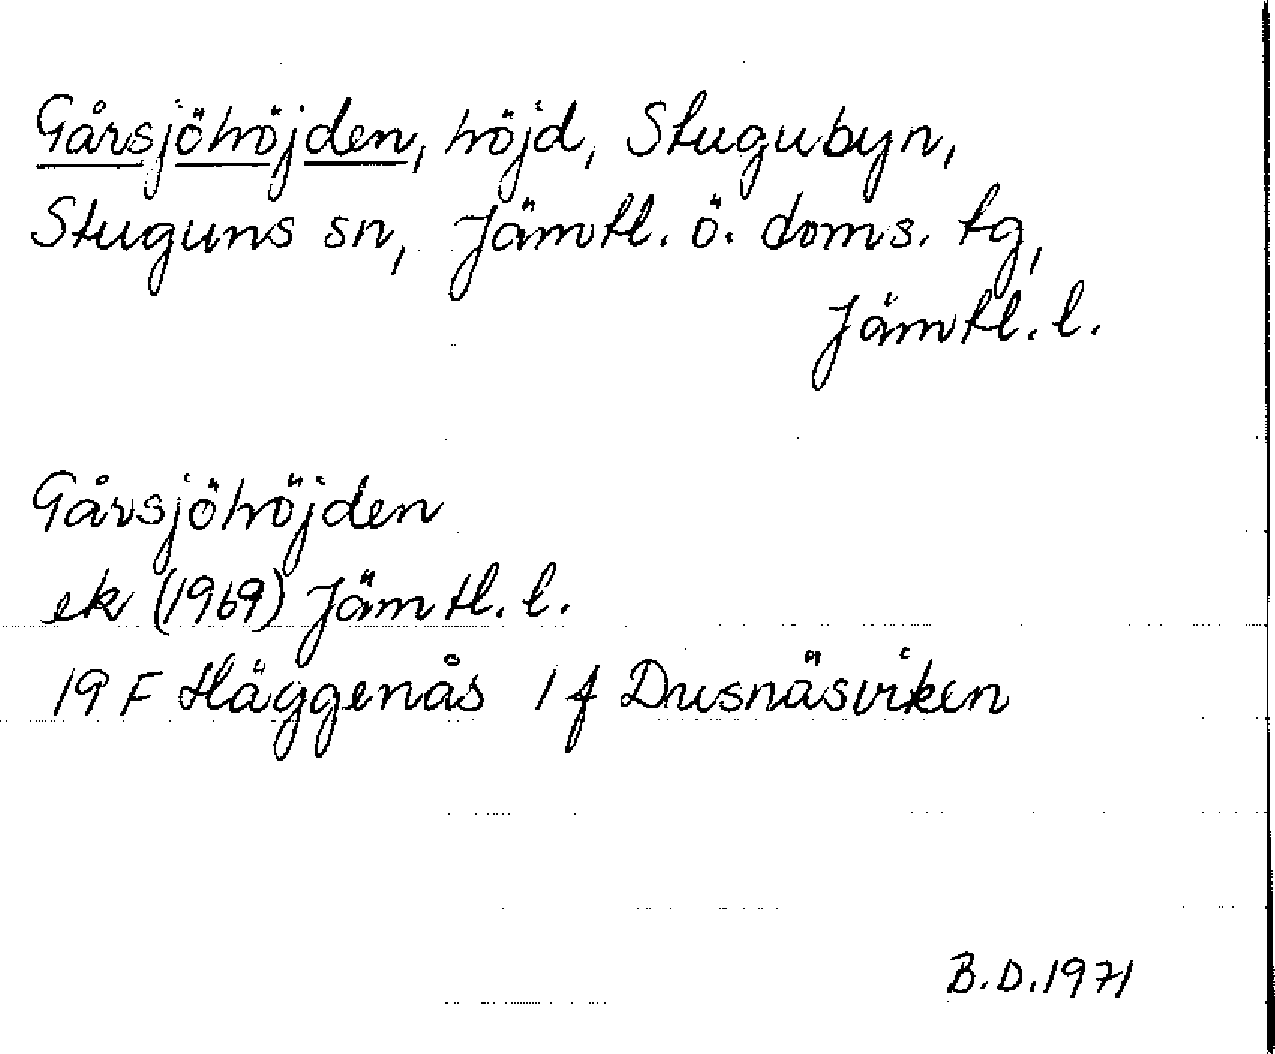 Gårsjöhöjden, höjd, Stugubyn,
Stuguns sn, Jämtl. ö. doms. tg,
Jämtl. l.
Gårsjöhöjden
ek (1969) Jämtl. l.
19 F Häggenås 1 f Dusnäsviken
B.D.1971